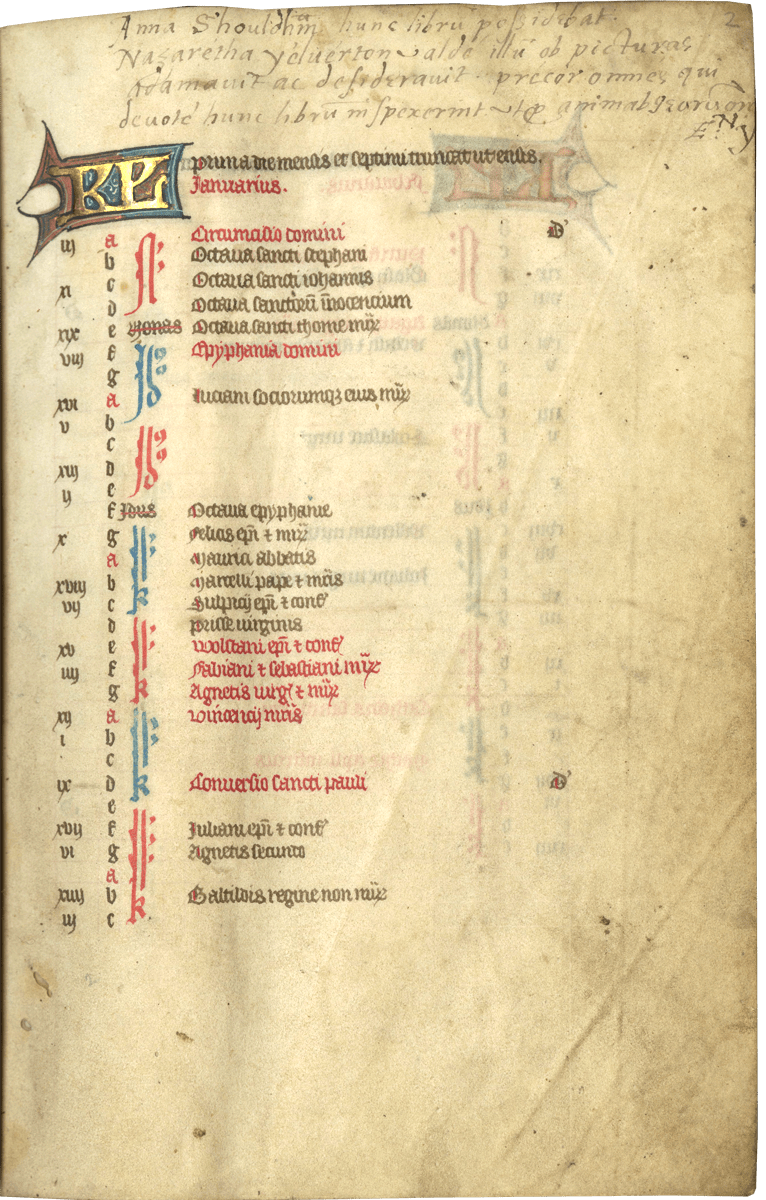 Anna Shouldhm̃ hunc librũ possidebat
Nazaretha yelverton valde illũ ob picturas
Adamauit ac desiderauit precor omnes qui
devote hunc librũ inspexerint
2
KL Prima dies mensis et septima truncat ut ensis.
Januarius.
iij a Circumcisio domini D'
b Octaua sancti stephani
c Octaua sancti iohannis
xi
d Octaua sanctorũ innocencium
xix e Nonas Octaua sancti thome mr̃
viij f Epyphania domini
g
xvi a Luciani sociorumqz eius mr̃
v b
c
xiij d
ij e
f Idus Octaua epyphanie
x g Felicis ep̃i ⁊ mr̃
a Mauricii abbatis
xviij b Marcelli pape ⁊ mr̃is
vij c Sulpicij ep̃i ⁊ conf'
d Prisce uirginis
xv e Wolstani ep̃i ⁊ conf'
iiij f Fabiani ⁊ sebastiani mr̃
g Agnetis uirg' ⁊ mr̃
xij a Vincencij mr̃is
i b
c
ix d Conuersio sancti pauli D'
e
xvij f Juliani ep̃i ⁊ conf'
vi g Agnetis secundo
a
xiiij b Batildis regine non mr̃
iij c